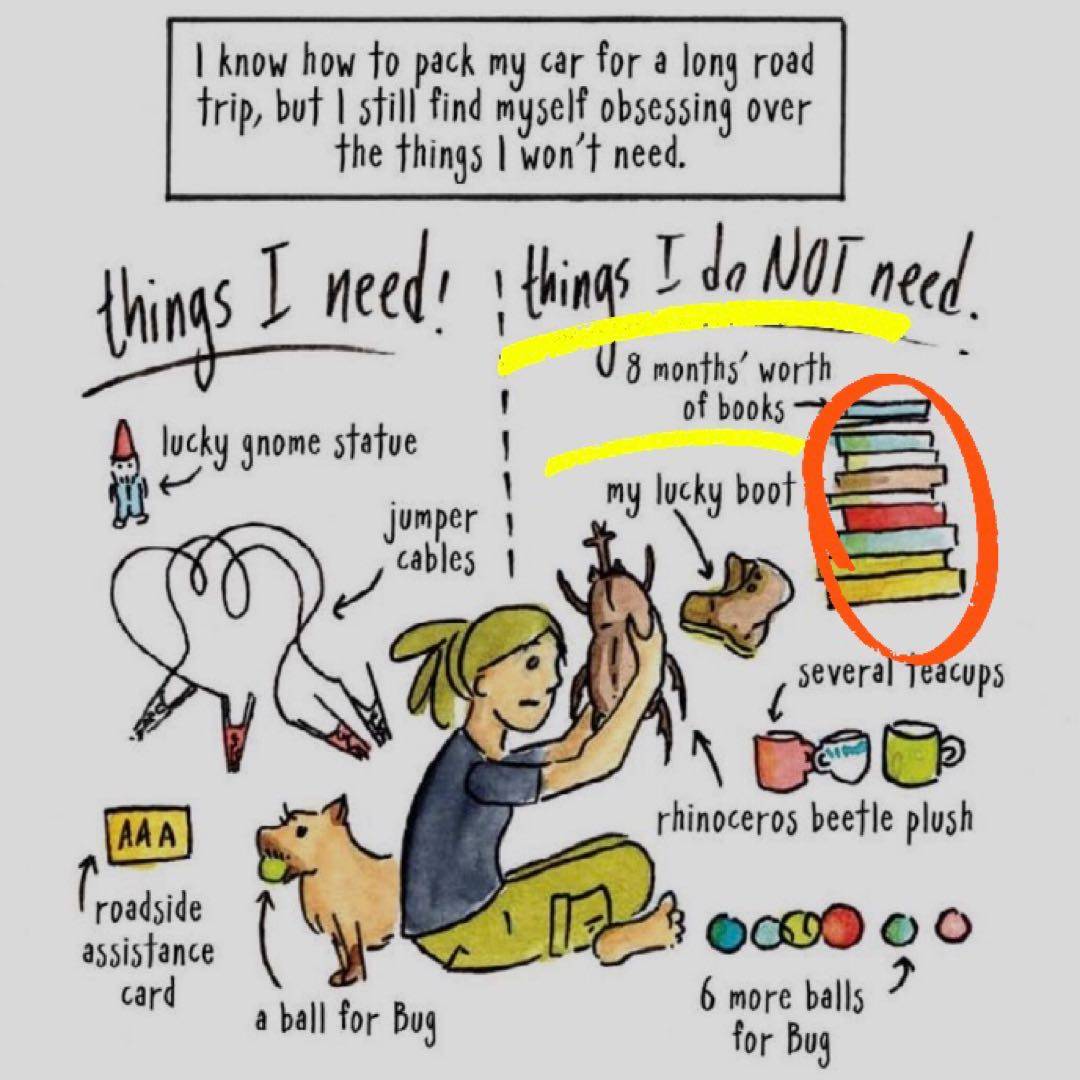 I know how to pack my car for a long road
trip, but I still find myself obsessing over
the things I won't need.
things I need!
things I do NOT need.
lucky gnome statue
jumper
cables
AAA
roadside
assistance
card
a ball for Bug
8 months' worth
of books
my lucky boot
several teacups
rhinoceros beetle plush
6 more balls
for Bug